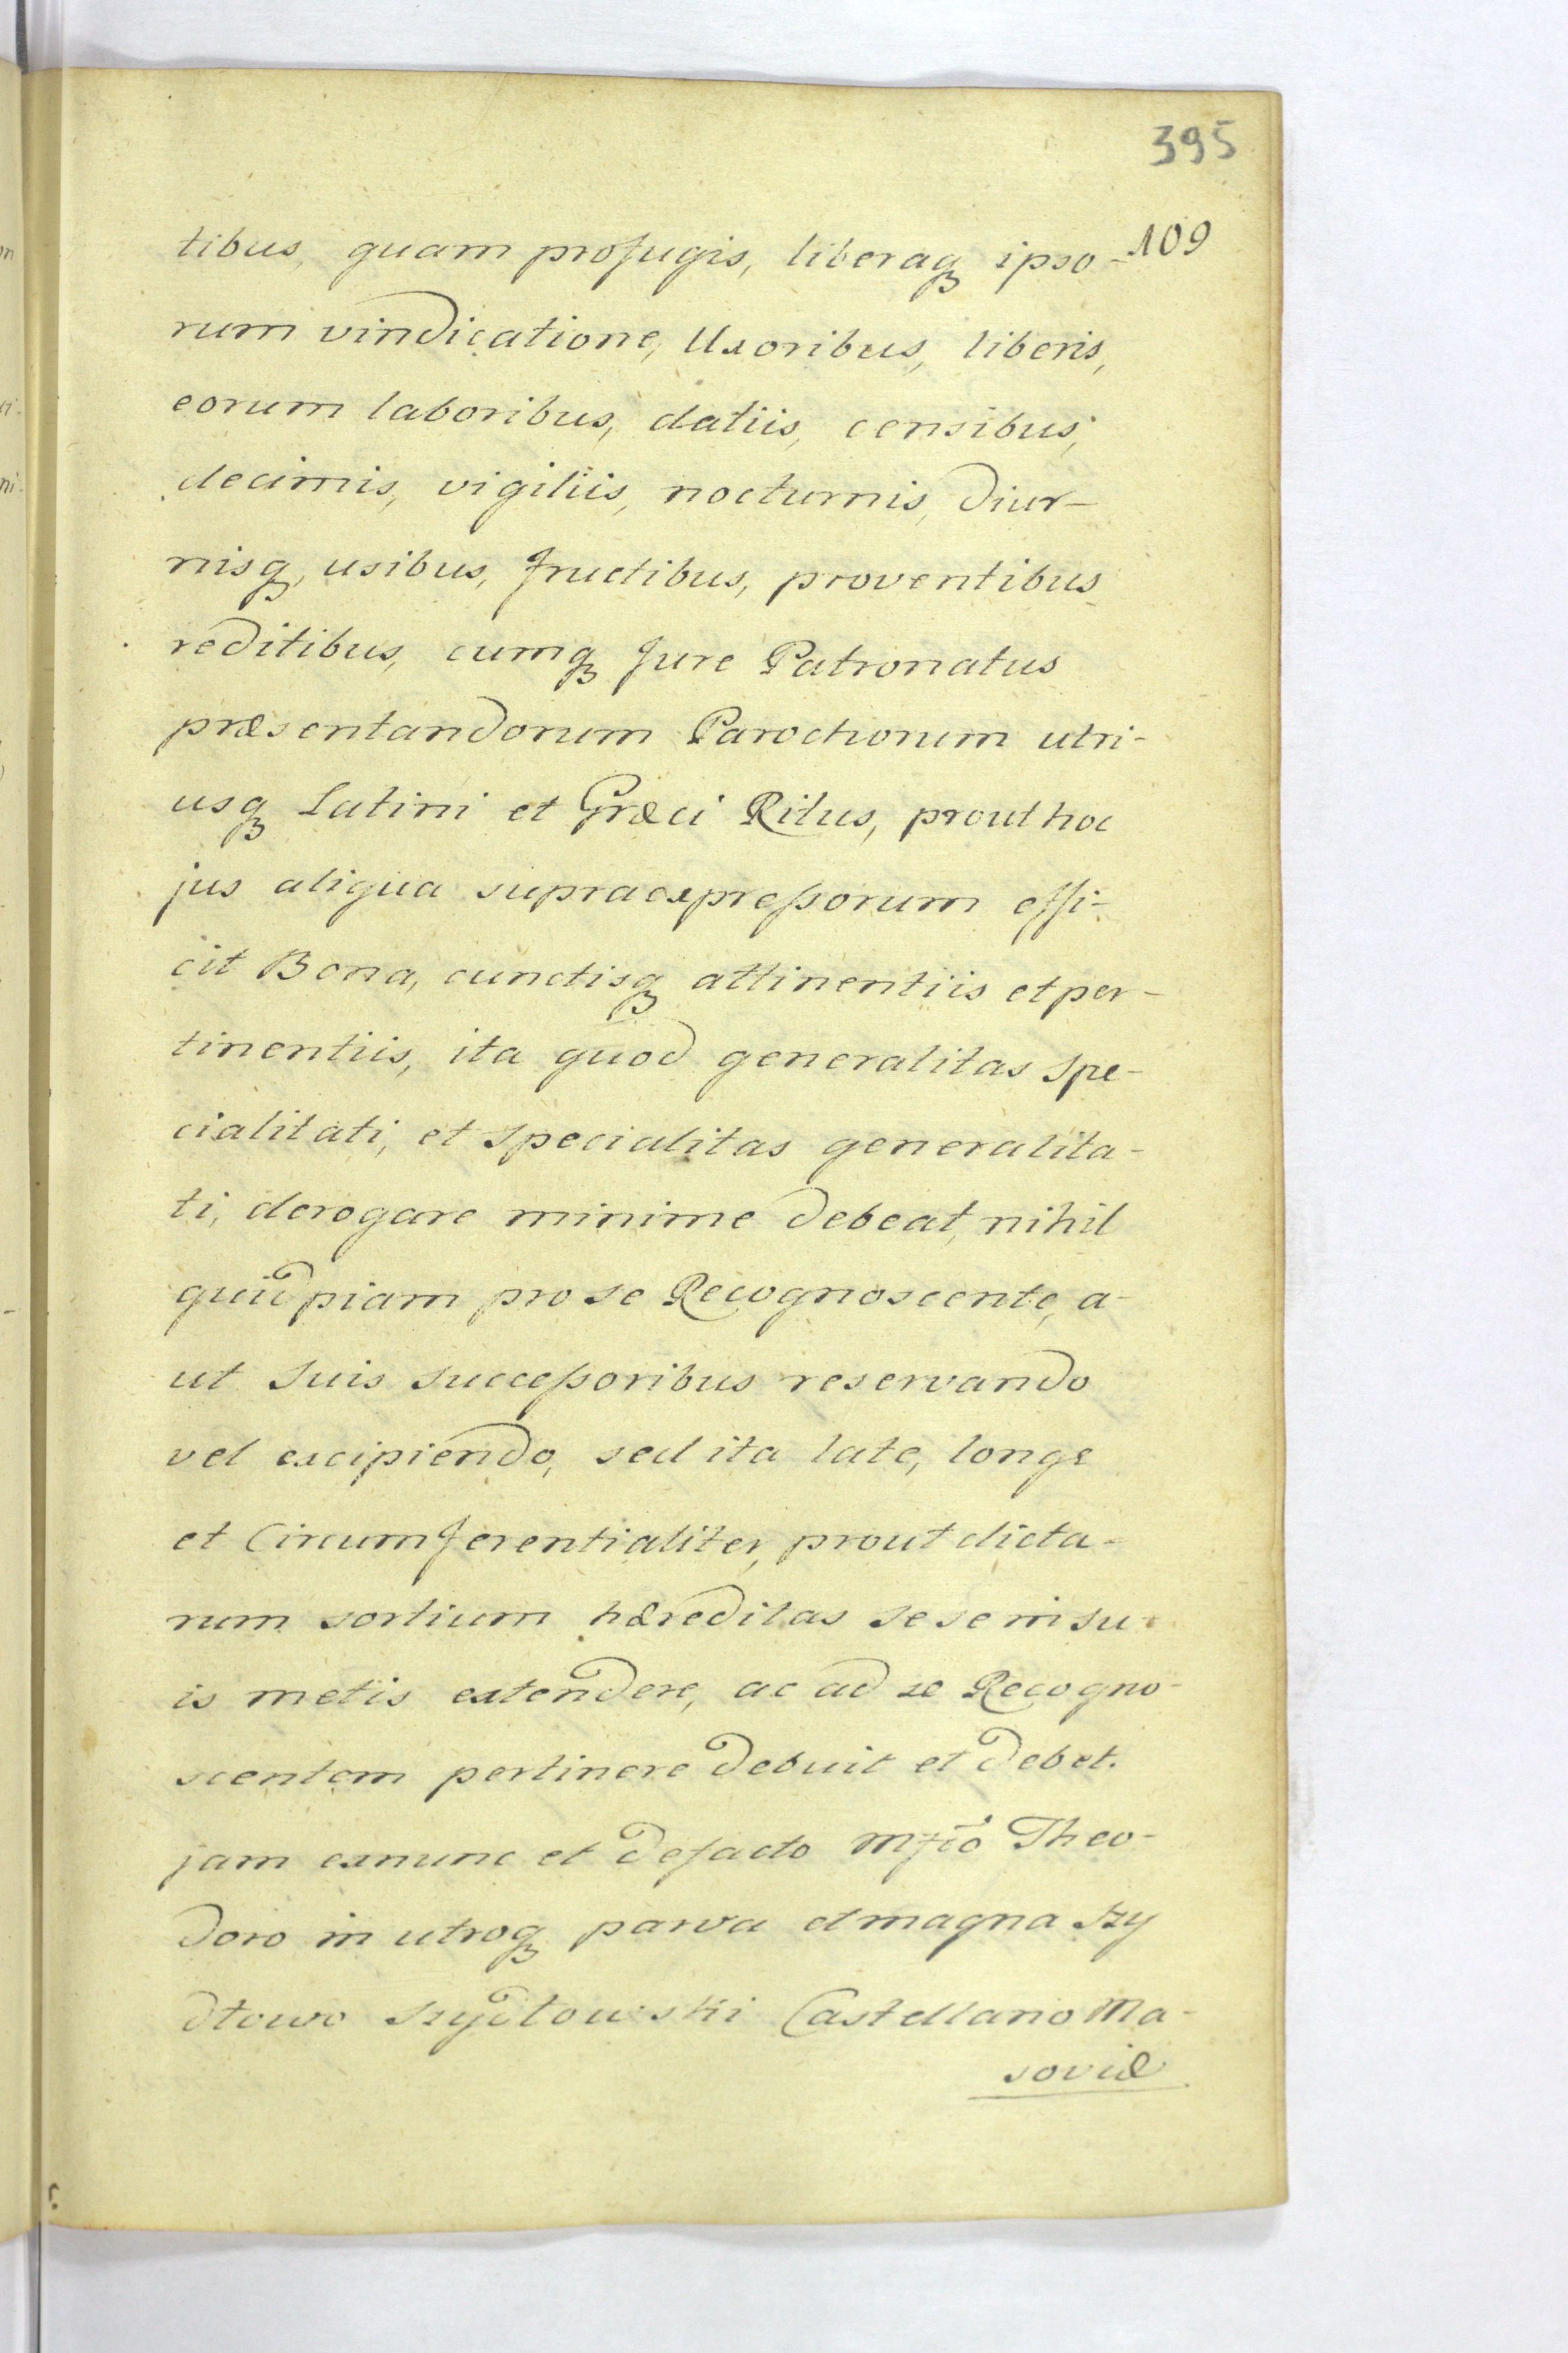 395
109
tibus, quam profugis, liberaqꝫ ipso-
rum vindicatione, Uxoribus, liberis,
eorum laboribus, datiis, censibus,
decimis, vigiliis, nocturnis, diur-
nisqꝫ usibus, fructibus, proventibus
reditibus, cumqꝫ Jure Patronatus
præsentandorum Parochorum utri-
usqꝫ Latini et Græci Ritus, prout hoc
jus aliqua supraexpreſsorum effi-
cit Bona, cunctisqꝫ attinentiis et per-
tinentiis, ita quod generalitas spe-
cialitati, et specialitas generalita-
ti, derogare minime debeat, nihil
quidpiam pro se Recognoscente, a-
ut suis succeſsoribus reservando
vel excipiendo, sed ita late, longe
et Circumferentialiter, prout dicta-
rum sortium hæreditas sese in su-
is metis extendere, ac ad se Recogno-
scentem pertinere debuit et debet.
jam exnunc et defacto Mfco Theo-
doro in utroqꝫ parva et magna Szy
dłowo Szydłowski Castellano Ma-
soviæ